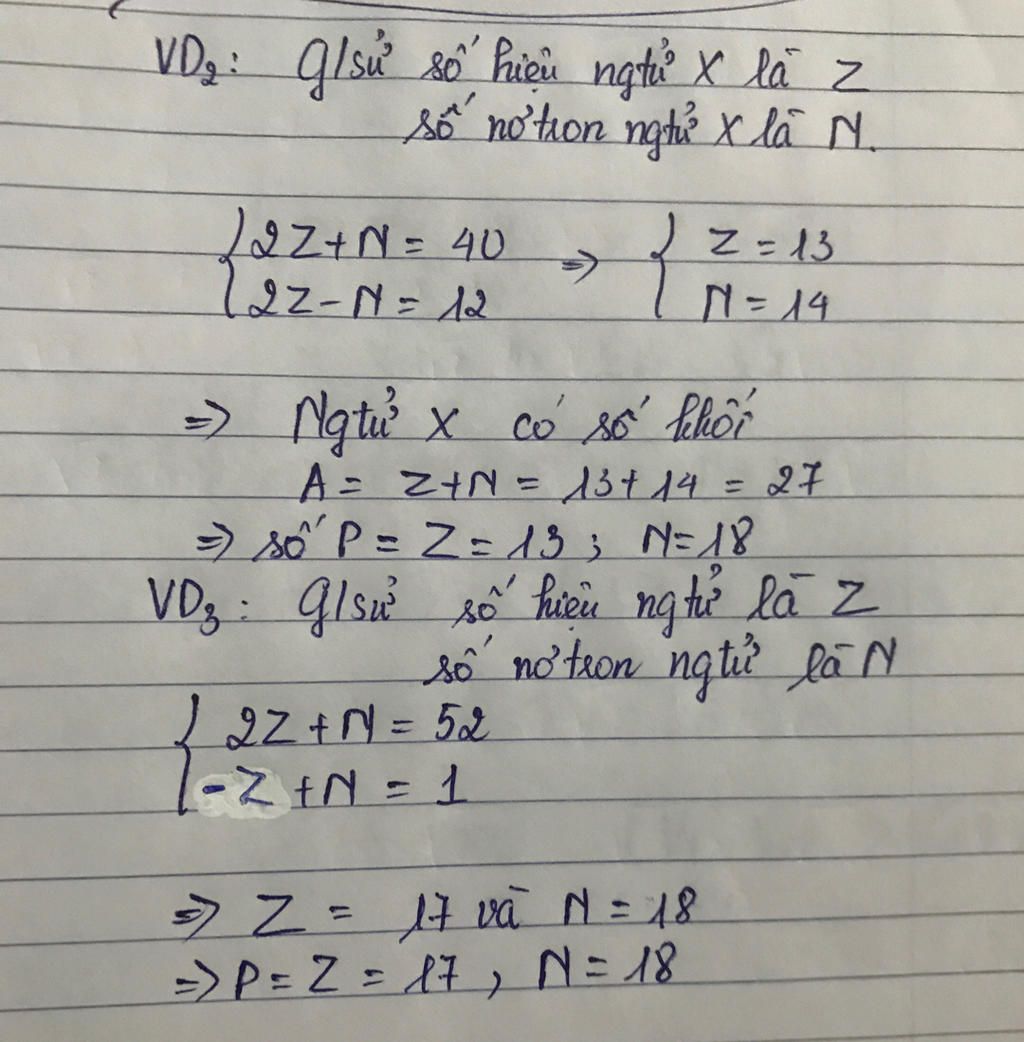 VD₂: G/sử số hiệu ngtử X là Z
số nơtron ngtử X là N.
{2Z+N = 40 => { Z = 13
{2Z-N = 12 { N = 14
=> Ngtử X có số khối
A = Z+N = 13+14 = 27
=> số P = Z = 13; N=18
VD₃: G/sử số hiệu ngtử là Z
số nơtron ngtử là N
{ 2Z+N = 52
{ -Z+N = 1
=> Z = 17 và N = 18
=> P = Z = 17, N = 18